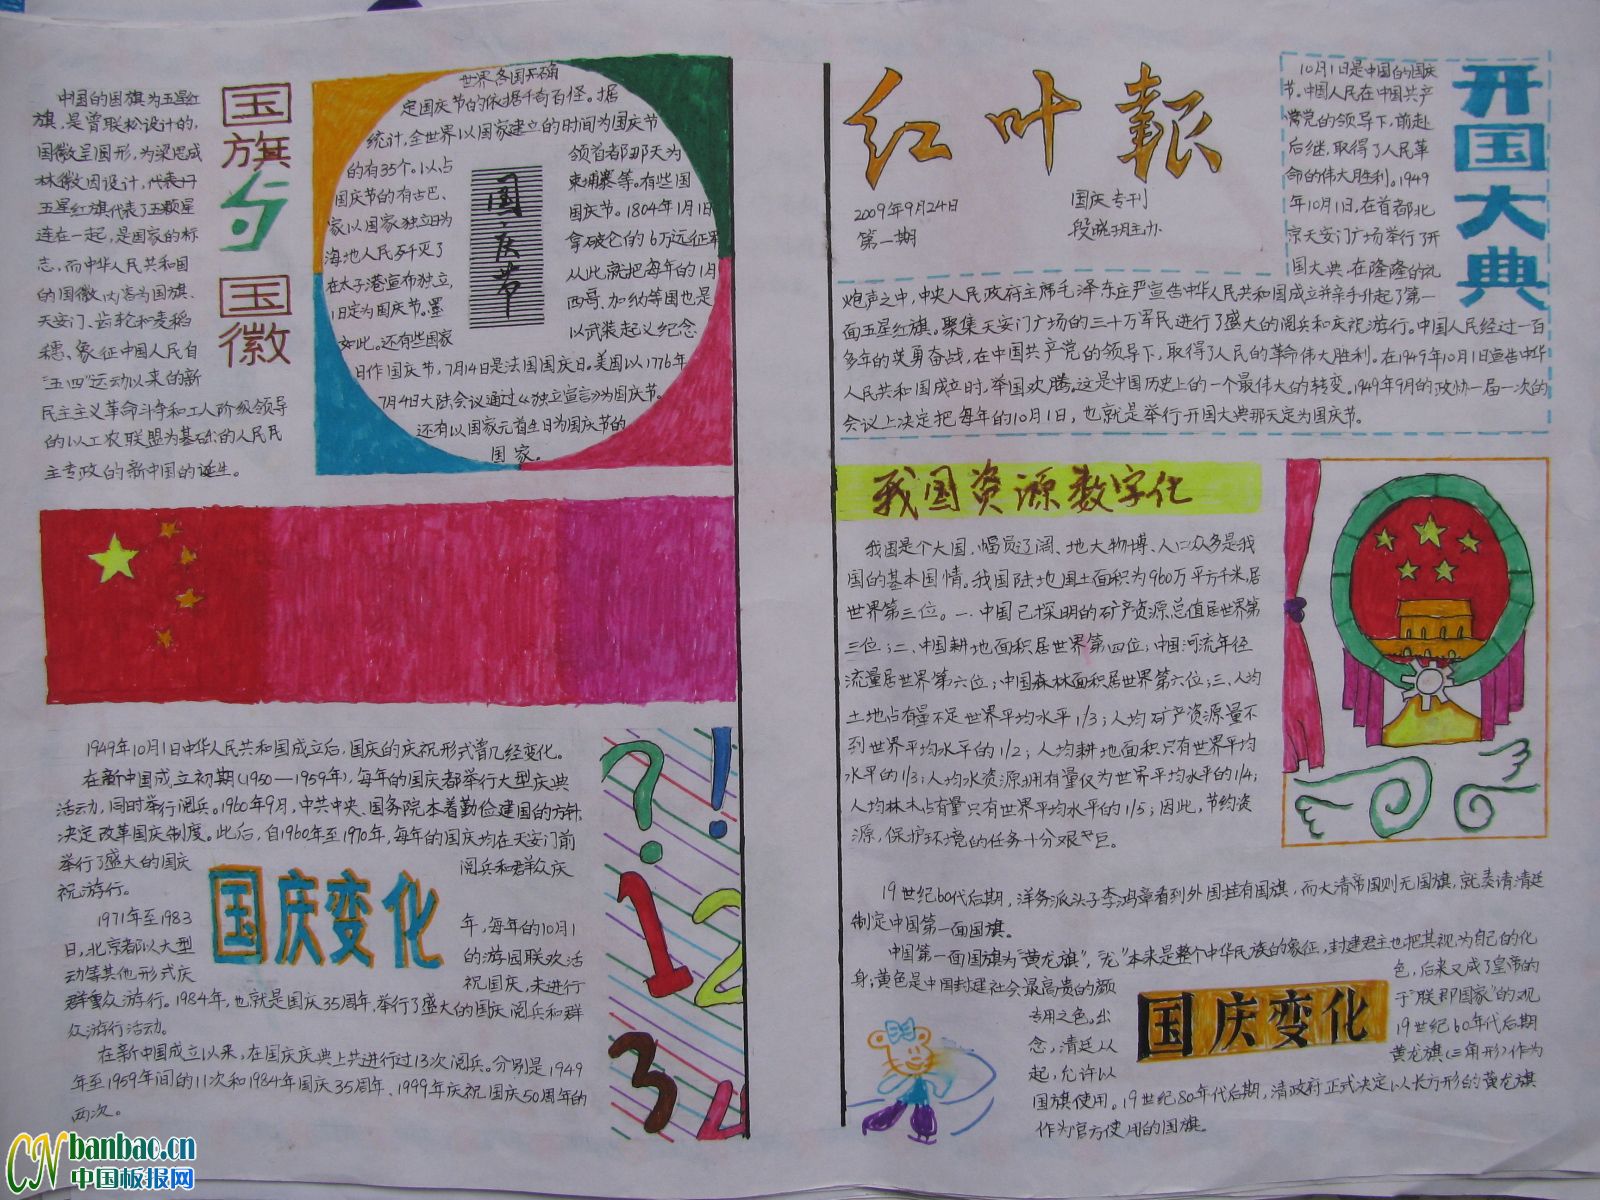 国旗与国徽
中国的国旗为五星红
旗,是曾联松设计的,
国徽呈圆形,为梁思成
林徽因设计,代表
五星红旗代表了五颗星
连在一起,是国家的标
志,而中华人民共和国
的国徽,内容为国旗、
天安门、齿轮和麦稻
穗、象征中国人民自
“五四”运动以来的新
民主主义革命斗争和工人阶级领导
的以工农联盟为基础的人民民
主专政的新中国的诞生。
国庆节
世界各国
定国庆节的依据千奇百怪。据
统计,全世界以国家建立的时间为国庆节
的有35个。以占领首者那天为
国庆节的有古巴、柬埔寨等。有些国
家以国家独立日为国庆节。1804年1月1日
海地人民歼灭了拿破仑的6万远征军
在太子港宣布独立,从此就把每年的1月
1日定为国庆节。墨西哥、加纳等国也是
如此。还有些国家以武装起义纪念
日作国庆节,7月14日是法国国庆日。美国以1776年
7月4日大陆会议通过《独立宣言》为国庆节。
还有以国家元首生日为国庆节的
国家。
1949年10月1日中华人民共和国成立后,国庆的庆祝形式曾几经变化。
在新中国成立初期(1950—1959年),每年的国庆都举行大型庆典
活动,同时举行阅兵。1960年9月,中共中央、国务院本着勤俭建国的方针,
决定改革国庆制度。此后,自1960年至1970年,每年的国庆均在天安门前
举行了盛大的国庆阅兵和群众庆
祝游行。
国庆变化
1971年至1983年,每年的10月1
日,北京都以大型的游园联欢活
动等其他形式庆祝国庆,未进行
群众游行。1984年,也就是国庆35周年,举行了盛大的国庆阅兵和群
众游行活动。
在新中国成立以来,在国庆庆典上共进行过13次阅兵。分别是1949
年至1959年间的11次和1984年国庆35周年、1999年庆祝国庆50周年的
两次。
? !
1 2
3 4
红叶报
2009年9月24日
第一期
国庆专刊
开国大典
10月1日是中国的国庆
节。中国人民在中国共产
党的领导下,前赴
后继,取得了人民革
命的伟大胜利。1949
年10月1日,在首都北
京天安门广场举行了开
国大典,在隆隆的礼
炮声之中,中央人民政府主席毛泽东庄严宣告中华人民共和国成立并亲手升起了第一
面五星红旗。聚集天安门广场的三十万军民进行了盛大的阅兵和庆祝游行。中国人民经过一百
多年的英勇奋战,在中国共产党的领导下,取得了人民的革命伟大胜利。在1949年10月1日宣告中华
人民共和国成立时,举国欢腾。这是中国历史上的一个最伟大的转变。1949年9月的政协一届一次的
会议上决定把每年的10月1日,也就是举行开国大典那天定为国庆节。
我国资源数字化
我国是个大国、幅员辽阔、地大物博、人口众多是我
国的基本国情。我国陆地国土面积为960万平方千米,居
世界第三位。一.中国已探明的矿产资源总值居世界第
三位;二、中国耕地面积居世界第四位;中国河流年径
流量居世界第六位;中国森林面积居世界第六位;三、人均
土地占有量不足世界平均水平1/3;人均矿产资源量不
到世界平均水平的1/2;人均耕地面积只有世界平均
水平的1/3;人均水资源拥有量仅为世界平均水平的1/4;
人均林木占有量只有世界平均水平的1/5;因此,节约资
源,保护环境的任务十分艰巨。
19世纪60代后期,洋务派头子李鸿章看到外国挂有国旗,而大清帝国则无国旗,就奏请清廷
制定中国第一面国旗。
中国第一面国旗为“黄龙旗”,“龙”本来是整个中华民族的象征,封建君主也把其视为自己的化
身;黄色是中国封建社会最高贵的颜色,后来又成了皇帝的
专用之色。出于“联邦国家”的观
念,清廷从19世纪60年代后期
起,允许以黄龙旗(三角形)作为
国旗使用。19世纪80年代后期,清政府正式决定以长方形的黄龙旗
作为官方使用的国旗。
国庆变化
CN banbao.cn
中国板报网